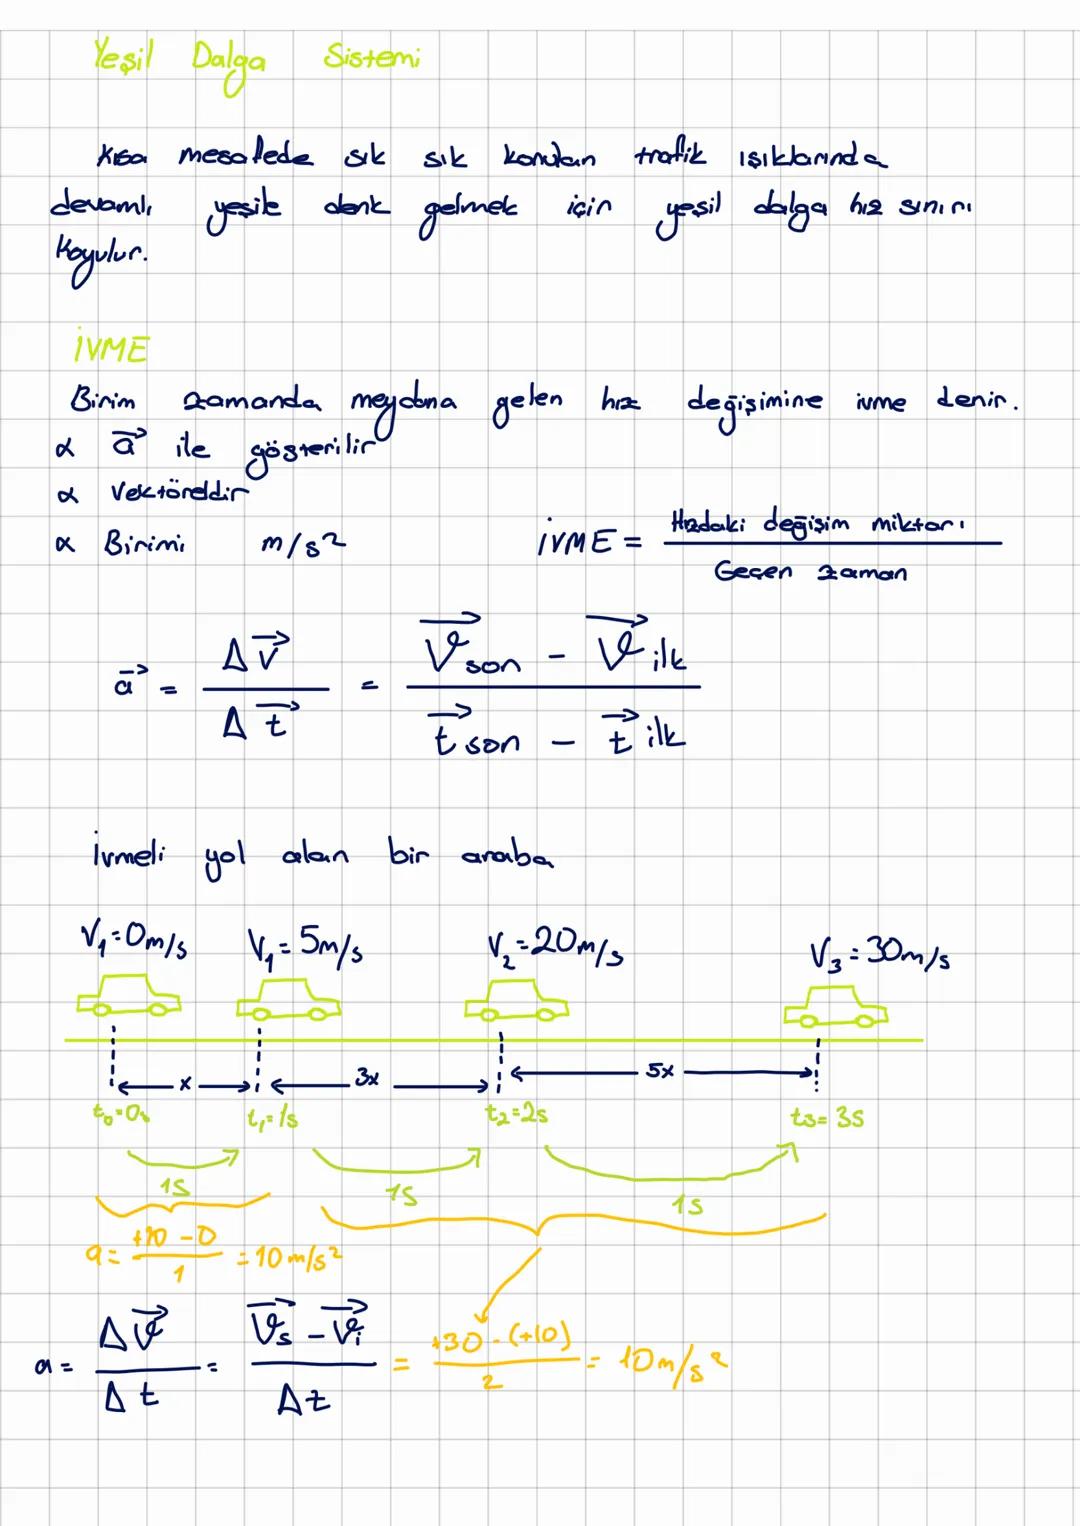 Yeşil Dalga Sistemi
Kısa mesafede sık sık konulan trafik ışıklarında
devamlı yeşile denk gelmek için yeşil dalga hız sınırı
koyulur.
İVME
Birim zamanda meydana gelen hız değişimine ivme denir.
α a⃗ ile gösterilir
α Vektöreldir
α Birimi m/s²
İVME = Hızdaki değişim miktarı / Geçen zaman
a⃗ = ΔV⃗ / Δt⃗ = V⃗son - V⃗ilk / t⃗son - t⃗ilk
İvmeli yol alan bir araba
V₁=0m/s V₁=5m/s V₂=20m/s V₃=30m/s
x 3x 5x
t₀=0s t₁=1s t₂=2s t₃=3s
1s 1s 1s
a = +10 - 0 / 1 = 10 m/s²
a = ΔV⃗ / Δt = V⃗s - V⃗i / Δt = +30 - (+10) / 2 = 10 m/s²